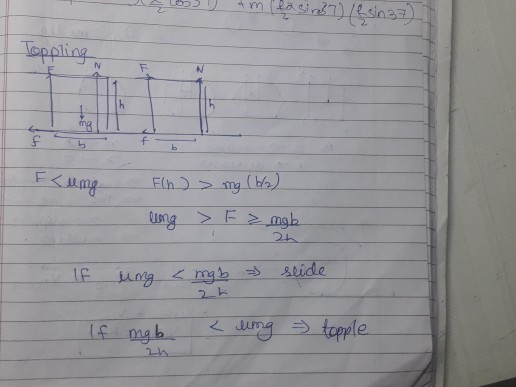 + m (h/2 sin37) (h/2 sin37)
Toppling
F N F N
h h
mg
f b f b
F < μmg F(h) > mg (b/2)
μmg > F ≥ mgb/2h
If μmg < mgb/2h ⇒ slide
If mgb/2h < μmg ⇒ topple